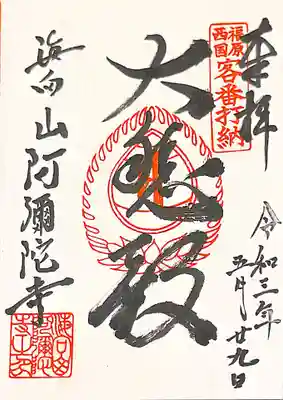 奉拝
福原
西国
客番打納
大悲殿
令和三年
五月廿九日
海向山阿彌陀寺